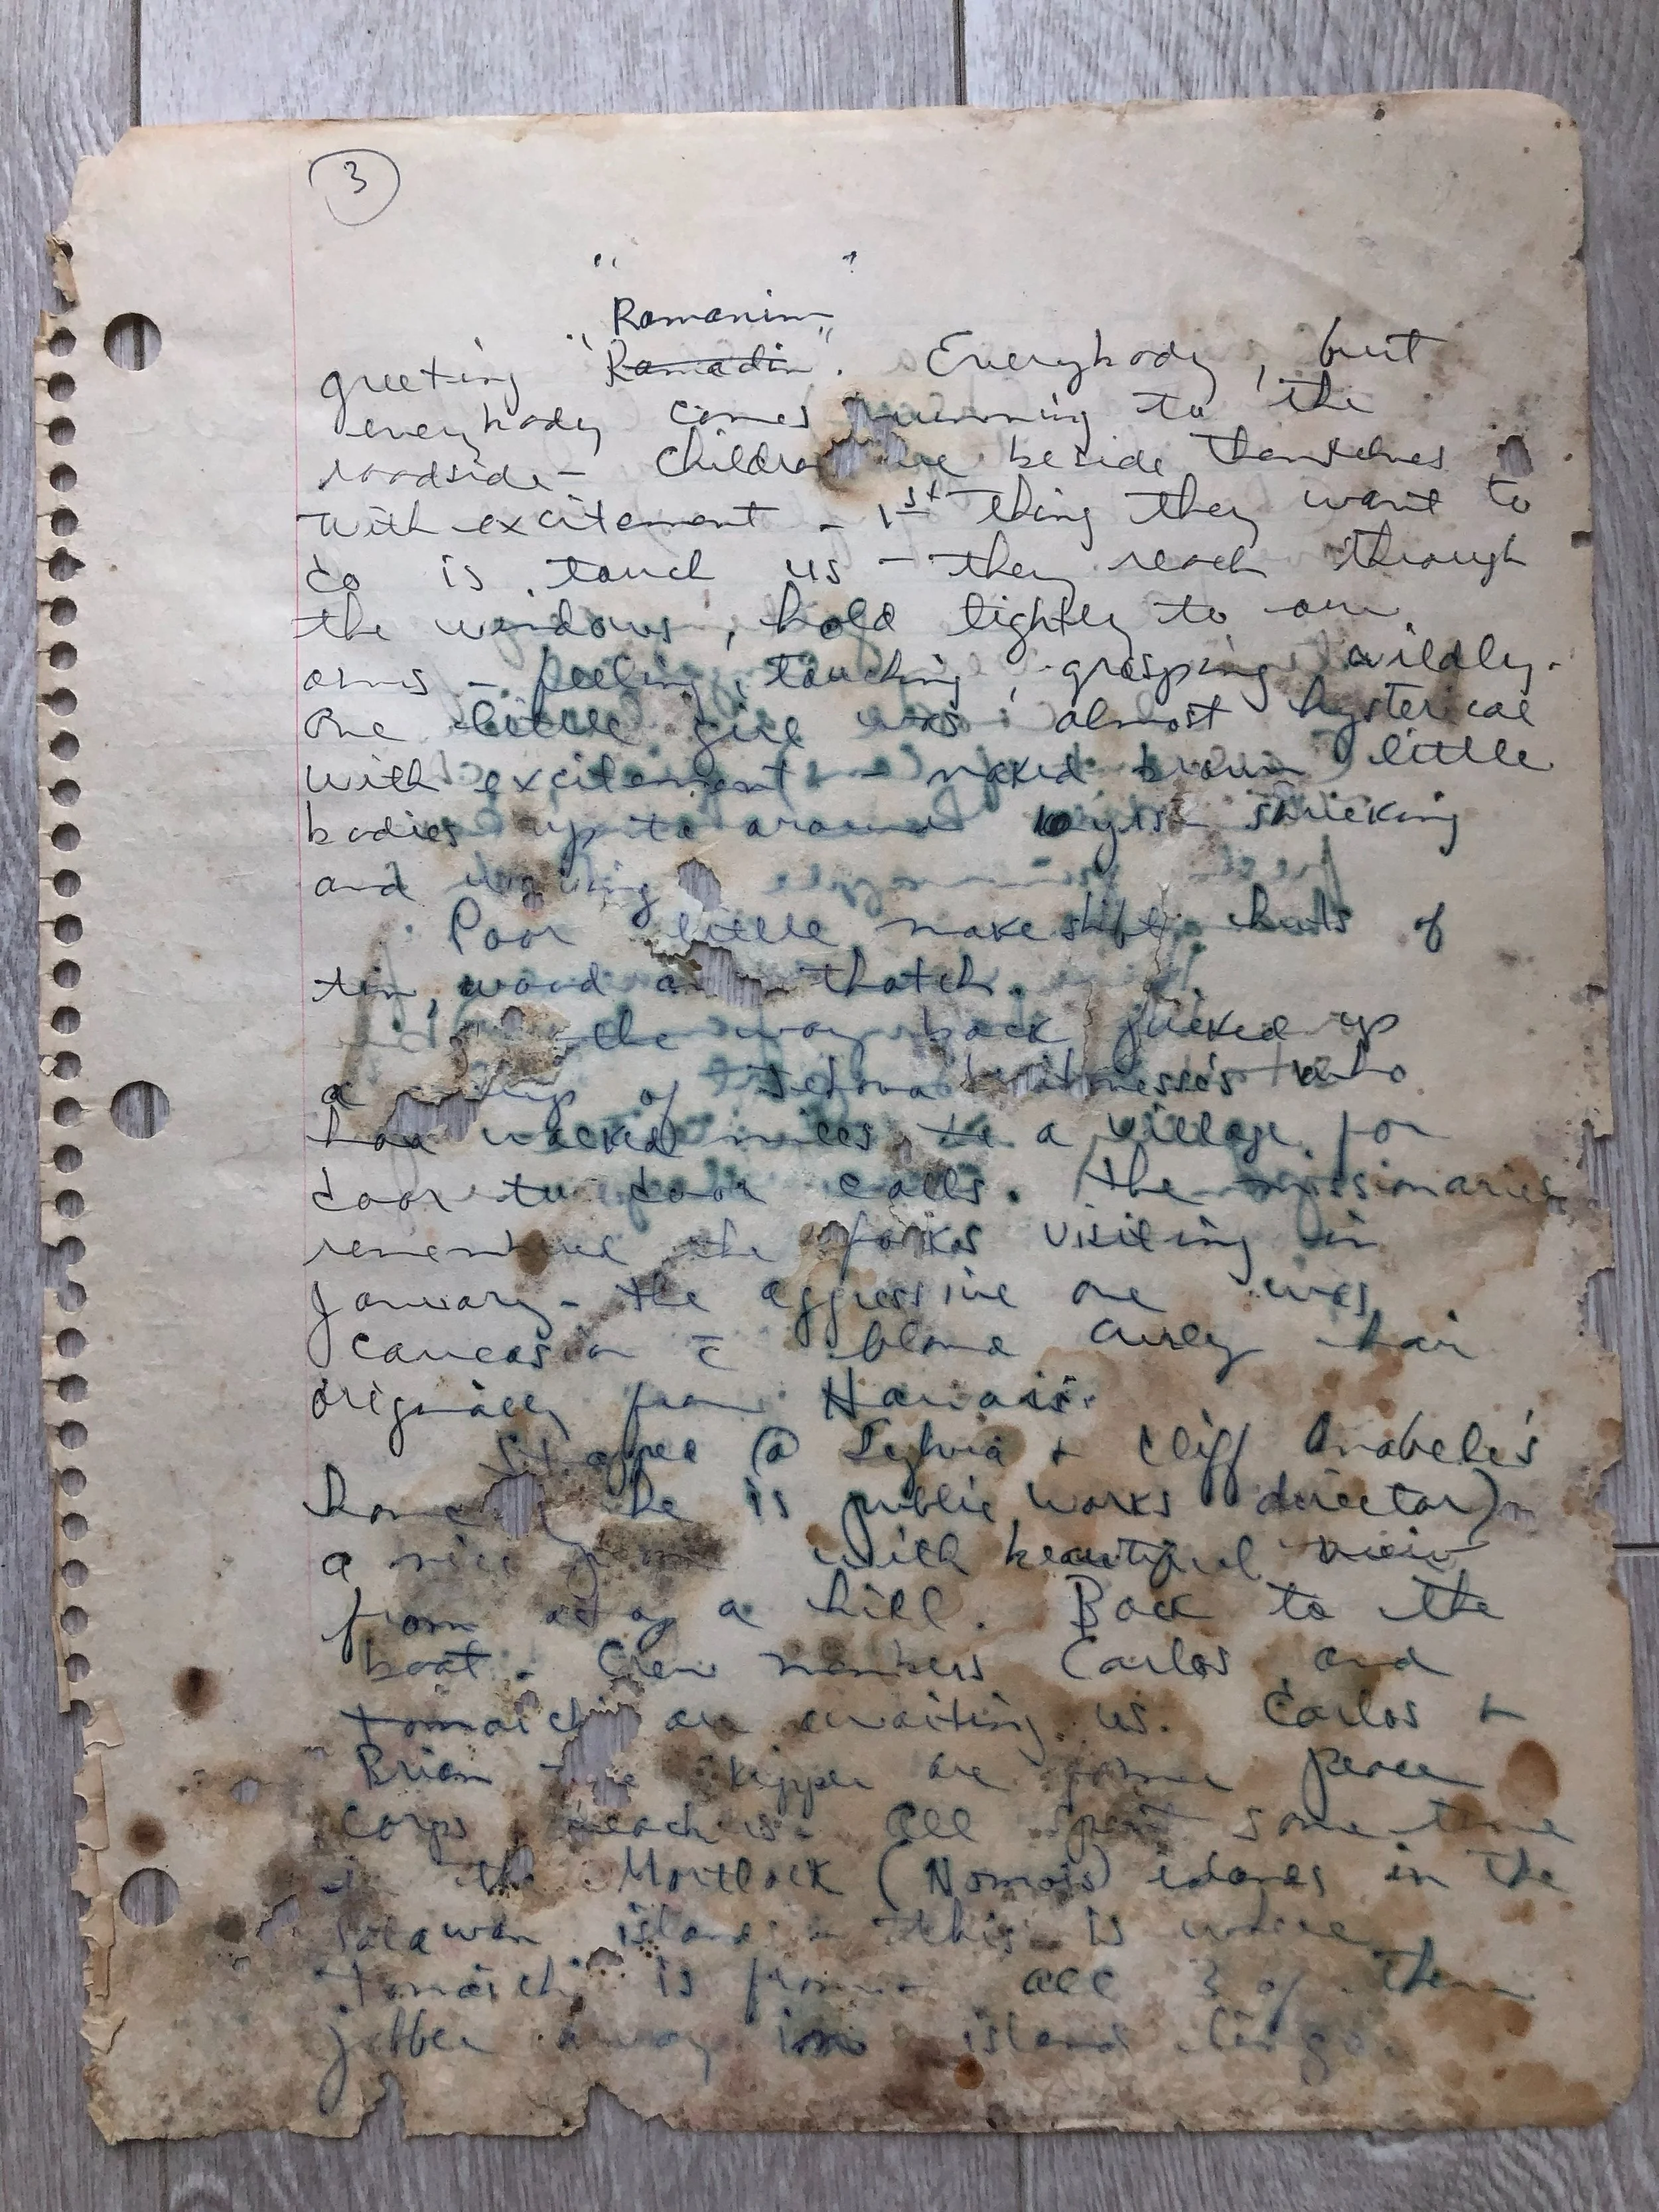 3
" "
Romanim
greeting "Ramadin". Everybody, but
everybody comes running to the
roadside - Children are beside themselves
with excitement - 1st thing they want to
do is touch us - they reach through
the windows, hold tightly to our
arms - feeling, touching, grasping wildly.
One little girl was almost hysterical
with excitement - naked brown little
bodies up to around 10 yrs. shrieking
and
Poor little makeshift huts of
tin, wood a thatch.
the way back picked up
a of Jehovah witnesses who
had walked miles to a village for
door to door calls. The missionaries
remember the folks visiting in
January - the aggressive one was
Caucasian c̄ blond curly hair
originally from Hawaii.
Stopped @ Sylvia + Cliff Anabele's
home (he is public works director)
a nice with beautiful view
from a hill. Back to the
boat. Crew members Carlos and
are awaiting us. Carlos +
Brian the skipper are former peace
corps teachers. All spent some time
in the Mortlock (Nomoi) islands in the
Satawan islands - this is where
is from - all 3 of them
jibber away in island lingo.